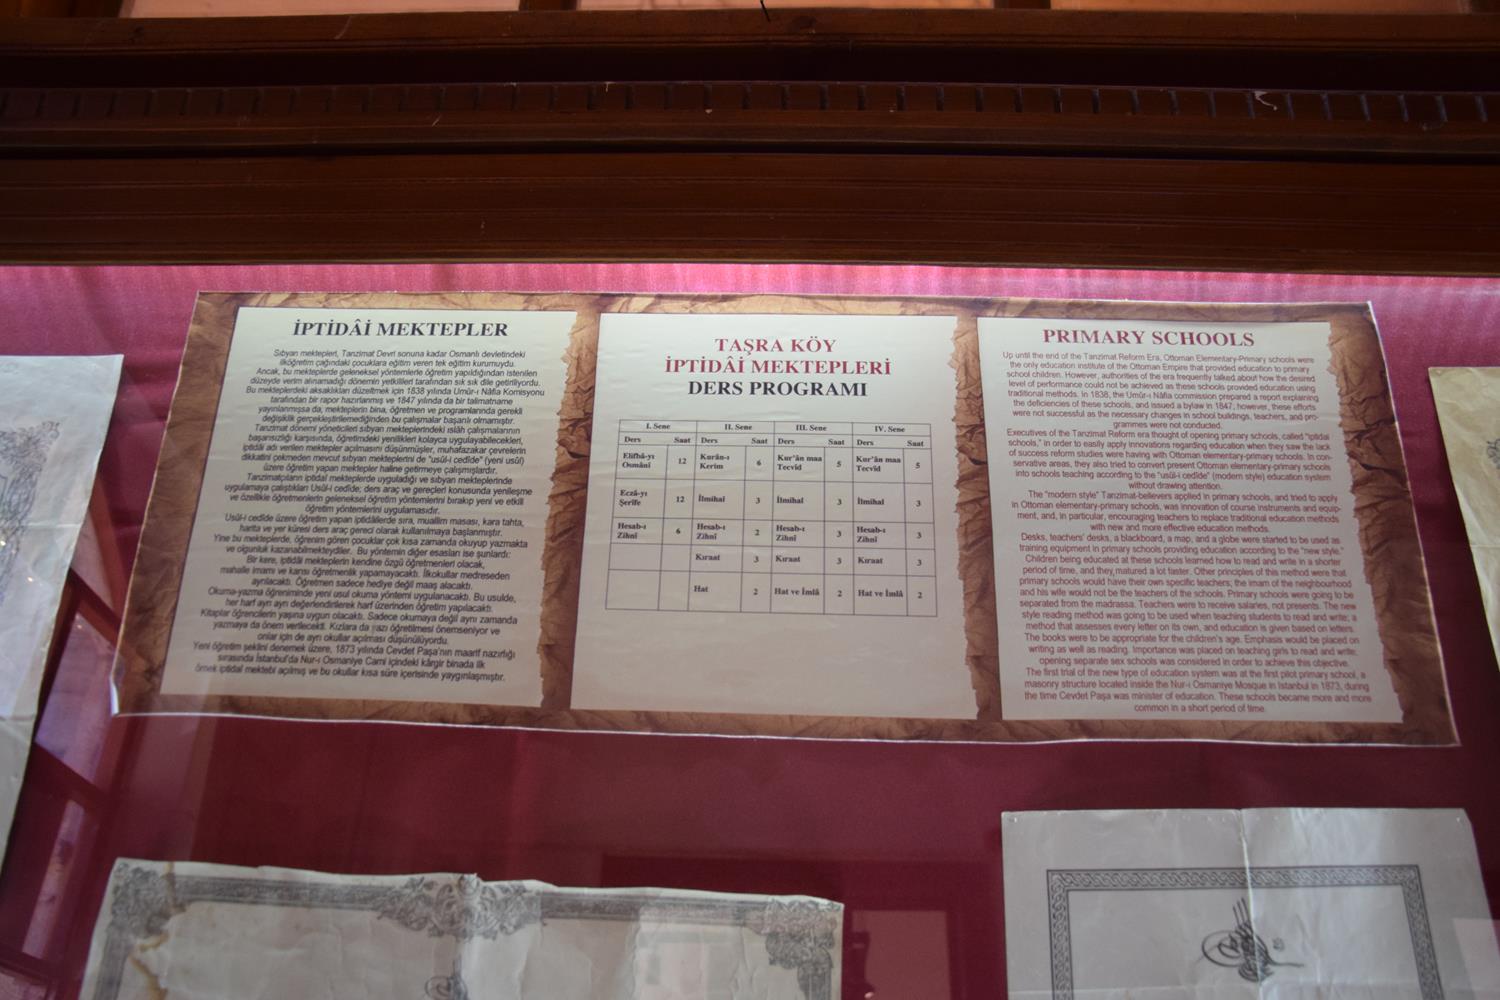 İPTİDÂİ MEKTEPLER
Sıbyan mektepleri, Tanzimat Devri sonuna kadar Osmanlı devletindeki
ilköğretim çağındaki çocuklara eğitim veren tek eğitim kurumuydu.
Ancak, bu mekteplerde geleneksel yöntemlerle öğretim yapıldığından istenilen
düzeyde verim alınamadığı dönemin yetkilileri tarafından sık sık dile getiriliyordu.
Bu mekteplerdeki aksaklıkları düzeltmek için 1838 yılında Umûr-ı Nâfia Komisyonu
tarafından bir rapor hazırlanmış ve 1847 yılında da bir talimatname
yayınlanmışsa da, mekteplerin bina, öğretmen ve programlarında gerekli
değişiklik gerçekleştirilemediğinden bu çalışmalar başarılı olmamıştır.
Tanzimat dönemi yöneticileri sıbyan mekteplerindeki ıslâh çalışmalarının
başarısızlığı karşısında, öğretimdeki yenilikleri kolayca uygulayabilecekleri,
iptidâi adı verilen mektepler açılmasını düşünmüşler, muhafazakar çevrelerin
dikkatini çekmeden mevcut sıbyan mekteplerini de "usûl-i cedîde" (yeni usûl)
üzere öğretim yapan mektepler haline getirmeye çalışmışlardır.
Tanzimatçıların iptidai mekteplerde uyguladığı ve sıbyan mekteplerinde
uygulamaya çalıştıkları Usûl-i cedîde; ders araç ve gereçleri konusunda yenileşme
ve özellikle öğretmenlerin geleneksel öğretim yöntemlerini bırakıp yeni ve etkili
öğretim yöntemlerini uygulamasıdır.
Usûl-i cedîde üzere öğretim yapan iptidâîlerde sıra, muallim masası, kara tahta,
harita ve yer küresi ders araç gereci olarak kullanılmaya başlanmıştır.
Yine bu mekteplerde, öğrenim gören çocuklar çok kısa zamanda okuyup yazmakta
ve olgunluk kazanabilmekteydiler. Bu yöntemin diğer esasları ise şunlardı:
Bir kere, iptidâi mekteplerin kendine özgü öğretmenleri olacak,
mahalle imamı ve karısı öğretmenlik yapamayacaktı. İlkokullar medreseden
ayrılacaktı. Öğretmen sadece hediye değil maaş alacaktı.
Okuma-yazma öğreniminde yeni usul okuma yöntemi uygulanacaktı. Bu usulde,
her harf ayrı ayrı değerlendirilerek harf üzerinden öğretim yapılacaktı.
Kitaplar öğrencilerin yaşına uygun olacaktı. Sadece okumaya değil aynı zamanda
yazmaya da önem verilecekti. Kızlara da yazı öğretilmesi önemseniyor ve
onlar için de ayrı okullar açılması düşünülüyordu.
Yeni öğretim şeklini denemek üzere, 1873 yılında Cevdet Paşa'nın maarif nazırlığı
sırasında İstanbul'da Nur-ı Osmaniye Cami içindeki kârgir binada ilk
örnek iptidai mektebi açılmış ve bu okullar kısa süre içerisinde yaygınlaşmıştır.
TAŞRA KÖY
İPTİDÂİ MEKTEPLERİ
DERS PROGRAMI
I. Sene II. Sene III. Sene IV. Sene
Ders Saat Ders Saat Ders Saat Ders Saat
Elifbâ-yı Osmânî 12 Kurân-ı Kerim 6 Kur'ân maa Tecvîd 5 Kur'ân maa Tecvîd 5
Eczâ-yı Şerîfe 12 İlmihal 3 İlmihal 3 İlmihal 3
Hesab-ı Zihnî 6 Hesab-ı Zihnî 2 Hesab-ı Zihnî 3 Hesab-ı Zihnî 3
Kıraat 3 Kıraat 3 Kıraat 3
Hat 2 Hat ve İmlâ 2 Hat ve İmlâ 2
PRIMARY SCHOOLS
Up until the end of the Tanzimat Reform Era, Ottoman Elementary-Primary schools were
the only education institute of the Ottoman Empire that provided education to primary
school children. However, authorities of the era frequently talked about how the desired
level of performance could not be achieved as these schools provided education using
traditional methods. In 1838, the Umûr-ı Nâfia commission prepared a report explaining
the deficiencies of these schools, and issued a bylaw in 1847, however, these efforts
were not successful as the necessary changes in school buildings, teachers, and pro-
grammes were not conducted.
Executives of the Tanzimat Reform era thought of opening primary schools, called "iptidai
schools," in order to easily apply innovations regarding education when they saw the lack
of success reform studies were having with Ottoman elementary-primary schools. In con-
servative areas, they also tried to convert present Ottoman elementary-primary schools
into schools teaching according to the "usûl-i cedîde" (modern style) education system
without drawing attention.
The "modern style" Tanzimat-believers applied in primary schools, and tried to apply
in Ottoman elementary-primary schools, was innovation of course instruments and equip-
ment, and, in particular, encouraging teachers to replace traditional education methods
with new and more effective education methods.
Desks, teachers' desks, a blackboard, a map, and a globe were started to be used as
training equipment in primary schools providing education according to the "new style."
Children being educated at these schools learned how to read and write in a shorter
period of time, and they matured a lot faster. Other principles of this method were that
primary schools would have their own specific teachers; the imam of the neighbourhood
and his wife would not be the teachers of the schools. Primary schools were going to be
separated from the madrassa. Teachers were to receive salaries, not presents. The new
style reading method was going to be used when teaching students to read and write; a
method that assesses every letter on its own, and education is given based on letters.
The books were to be appropriate for the children's age. Emphasis would be placed on
writing as well as reading. Importance was placed on teaching girls to read and write;
opening separate sex schools was considered in order to achieve this objective.
The first trial of the new type of education system was at the first pilot primary school, a
masonry structure located inside the Nur-ı Osmaniye Mosque in Istanbul in 1873, during
the time Cevdet Paşa was minister of education. These schools became more and more
common in a short period of time.